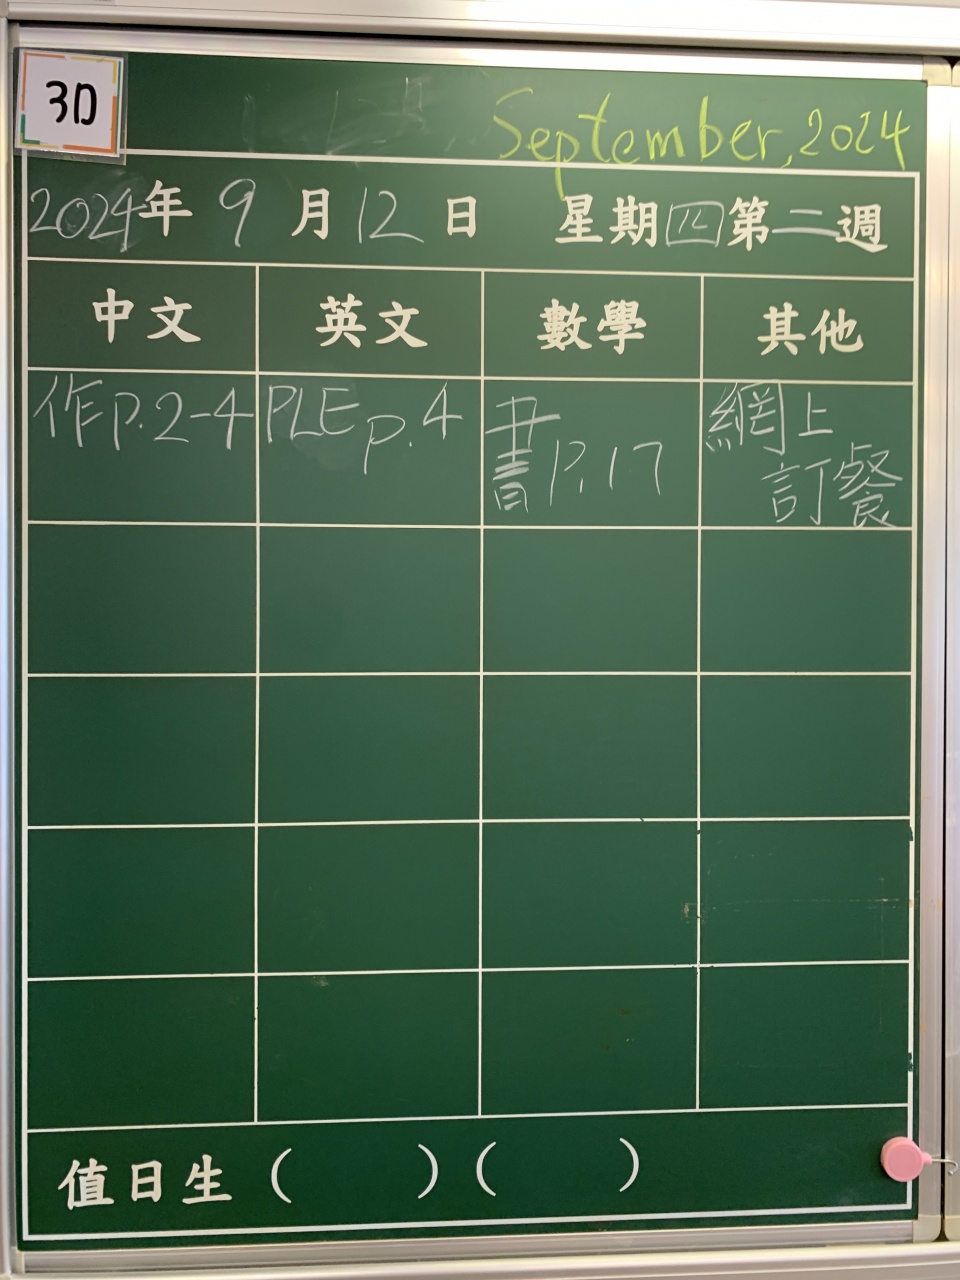 3D
September, 2024
2024年 9 月 12 日 星期四第二週
中文 英文 數學 其他
作P.2-4 PLE p.4 書P.17 網上
訂餐
值日生 ( ) ( )